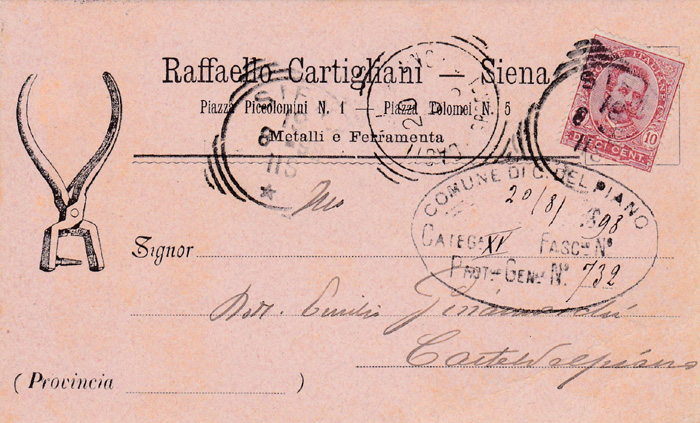 Raffaello Cartigliani — Siena
Piazza Piccolomini N. 1 — Piazza Tolomei N. 5
Metalli e Ferramenta
10
DIECI CENT.
COMUNE DI C. DEL PIANO
20/8/ 898
CATEG XV FASC.º Nº
PROT. GEN. Nº 732
Signor
Dott. Emilio
Casteldelpiano
(Provincia )